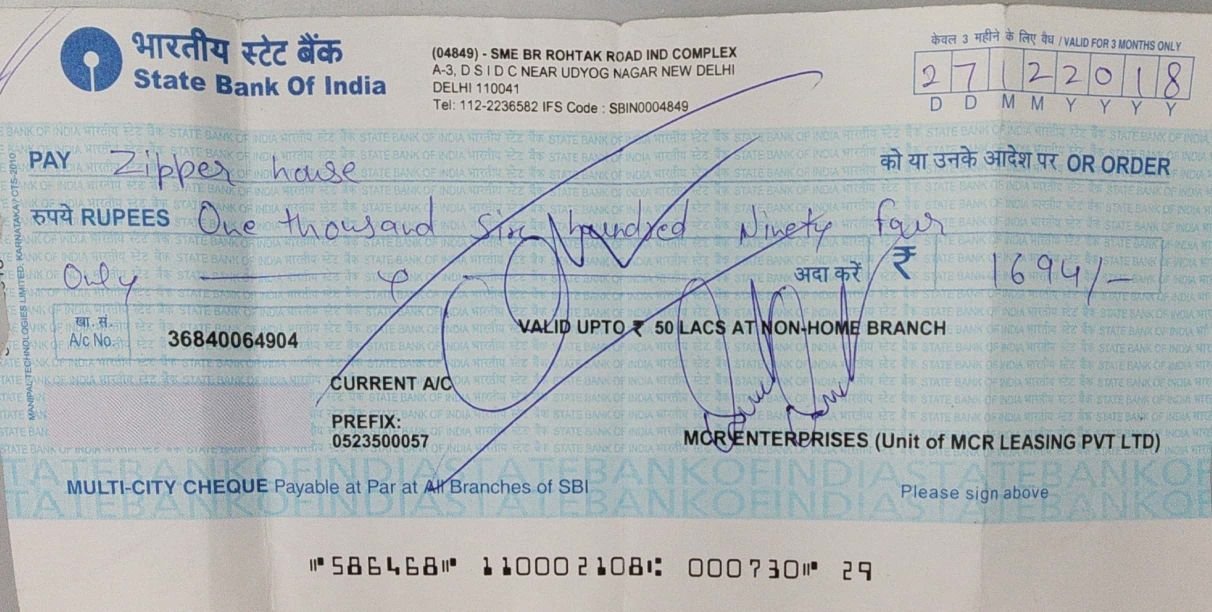 भारतीय स्टेट बैंक
State Bank Of India
(04849) - SME BR ROHTAK ROAD IND COMPLEX
A-3, D S I D C NEAR UDYOG NAGAR NEW DELHI
DELHI 110041
Tel: 112-2236582 IFS Code : SBIN0004849
केवल 3 महीने के लिए वैध / VALID FOR 3 MONTHS ONLY
27122018
D D M M Y Y Y Y
PAY Zipper house को या उनके आदेश पर OR ORDER
रुपये RUPEES One thousand Six hundred Ninety four
Only अदा करें ₹ 1694/-
खा. सं.
A/c No. 36840064904
VALID UPTO ₹ 50 LACS AT NON-HOME BRANCH
CURRENT A/C
PREFIX:
0523500057
MCR ENTERPRISES (Unit of MCR LEASING PVT LTD)
MULTI-CITY CHEQUE Payable at Par at All Branches of SBI
Please sign above
⑈586468⑈ 110002108⑆ 000730⑈ 29
MANIPAL TECHNOLOGIES LIMITED, KARNATAKA / CTS-2010